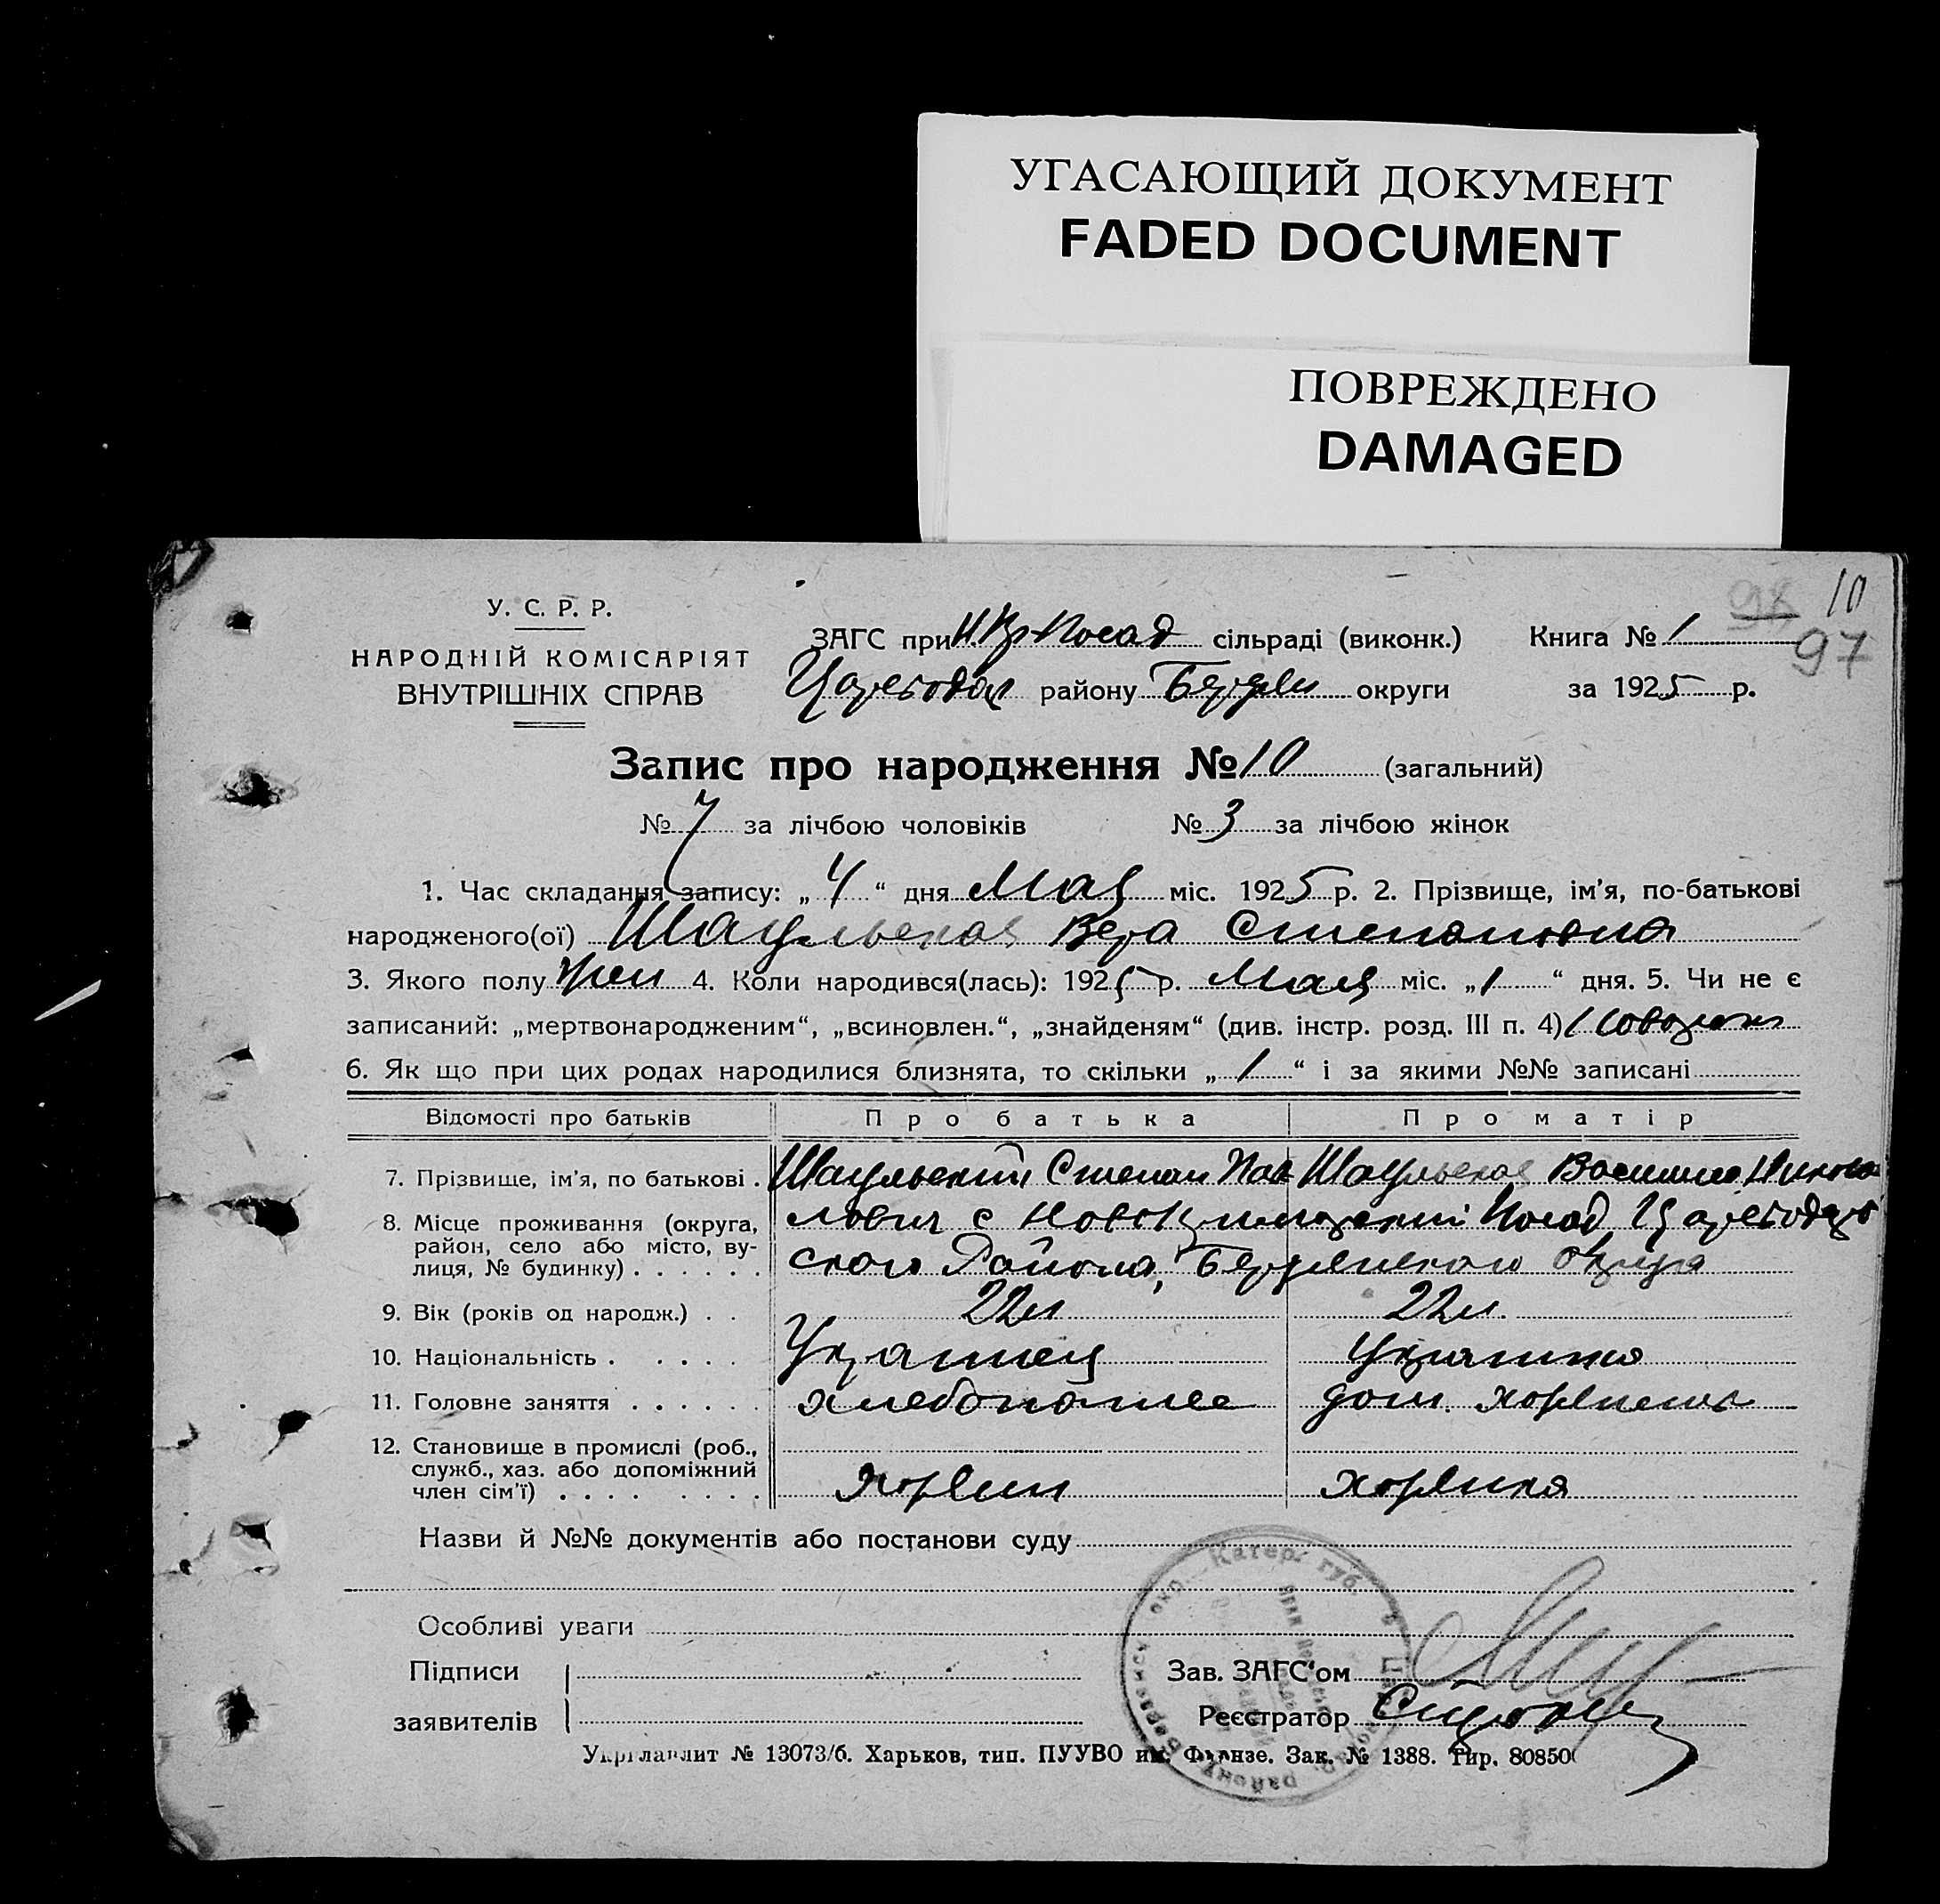 УГАСАЮЩИЙ ДОКУМЕНТ
FADED DOCUMENT
ПОВРЕЖДЕНО
DAMAGED
98 10
97
У. С. Р. Р.
НАРОДНІЙ КОМІСАРІЯТ
ВНУТРІШНІХ СПРАВ
ЗАГС при Посад сільраді (виконк.) Книга № 1
району округи за 1925 р.
Запис про народження № 10 (загальний)
№ 7 за лічбою чоловіків № 3 за лічбою жінок
1. Час складання запису: „ 4 “ дня Мая міс. 1925 р. 2. Прізвище, ім’я, по-батькові
народженого(ої) Шаульская Вера Степановна
3. Якого полу жен 4. Коли народився(лась): 1925 р. Мая міс. „ 1 “ дня. 5. Чи не є
записаний: „мертвонародженим“, „всиновлен.“, „знайденям“ (див. інстр. розд. III п. 4)
6. Як що при цих родах народилися близнята, то скільки „ 1 “ і за якими №№ записані
Відомості про батьків Про батька Про матір
7. Прізвище, ім’я, по батькові . Шаульский Степан Пав Шаульская
8. Місце проживання (округа, лович с Посад
район, село або місто, ву-
лиця, № будинку) . . . . . . ского Района, Бердянского округа
9. Вік (років од народж.) . . 22л 22л.
10. Національність . . . . . Украинец Украинка
11. Головне заняття . . . . . . дом.
12. Становище в промислі (роб.,
служб., хаз. або допоміжний
член сім’ї) . . . . . . . .
Назви й №№ документів або постанови суду
Особливі уваги
Підписи Зав. ЗАГС‘ом
заявителів Реєстратор
Укрглавлит № 13073/б. Харьков, тип. ПУУВО им. Фрунзе. Зак. № 1388. Тир. 80850
Катер. губ.
району